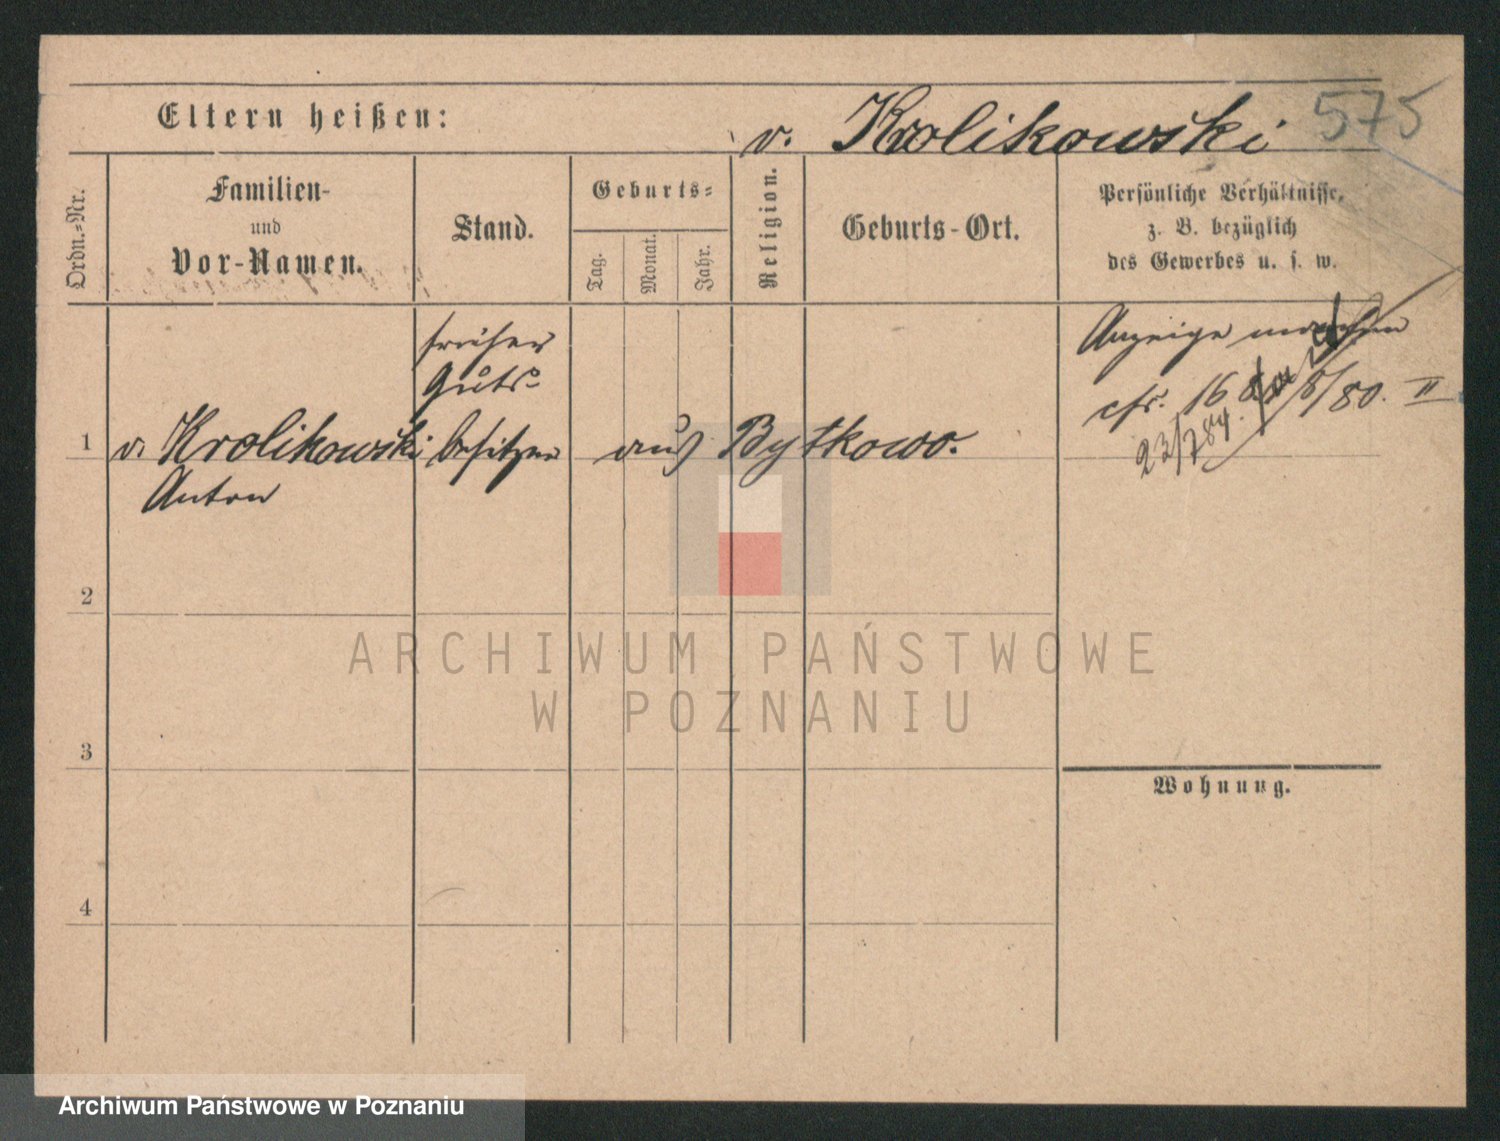 Eltern heißen:
v. Krolikowski 575
Ordn.-Nr.
Familien-
und
Vor-Namen.
Stand.
Geburts-
Tag.
Monat.
Jahr.
Religion.
Geburts-Ort.
Persönliche Verhältnisse,
z. B. bezüglich
des Gewerbes u. s. w.
früher
Guts-
1 v. Krolikowski besitzer aus Bytkowo.
Anton
Anzeige machen
cfr. 16 8/80. II
23/7 84.
2
3
4
Wohnung.
ARCHIWUM PAŃSTWOWE
W POZNANIU
Archiwum Państwowe w Poznaniu